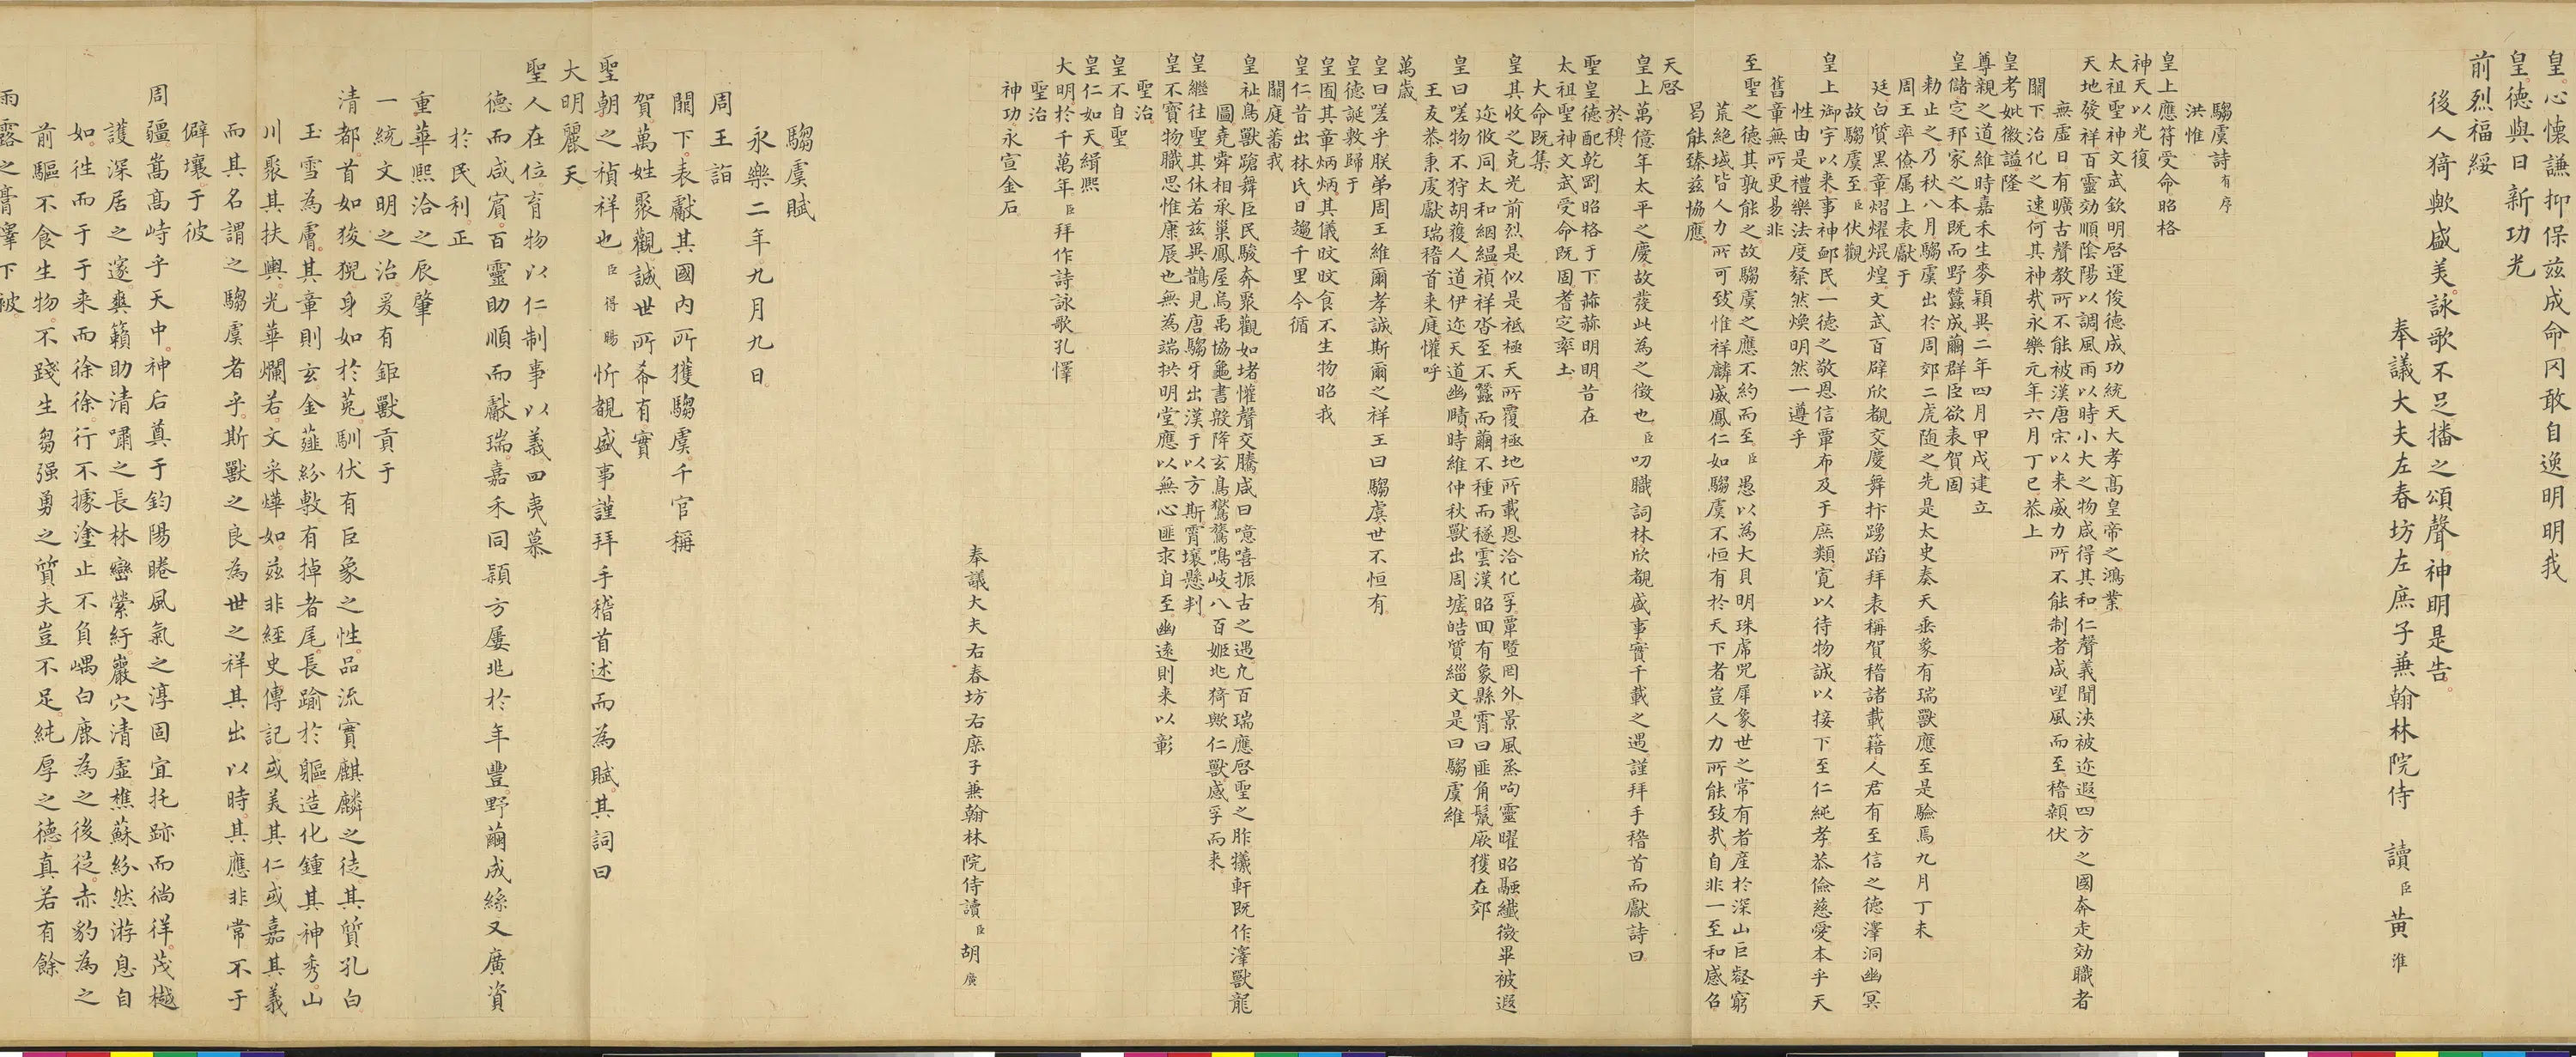 皇心懷謙抑保茲成命罔敢自逸明明我
皇德與日新功光
前烈福綏
後人猗歟盛美詠歌不足播之頌聲神明是告
奉議大夫左春坊左庶子兼翰林院侍讀臣黃淮
騶虞詩有序
洪惟
皇上應符受命昭格
神天以光復
太祖聖神文武欽明啓運俊德成功統天大孝高皇帝之鴻業
天地發祥百靈効順陰陽以調風雨以時小大之物咸得其和仁聲義聞浹被迩遐四方之國奔走効職者
無虛日有曠古聲教所不能被漢唐宋以来威力所不能制者咸望風而至稽顙伏
闕下治化之速何其神㢤永樂元年六月丁巳恭上
皇考妣徽謚隆
尊親之道維時嘉禾生麥穎異二年四月甲戌建立
皇儲定邦家之本既而野蠶成繭群臣欲表賀固
勑止之乃秋八月騶虞出於周郊二虎随之先是太史奏天垂象有瑞獸應至是驗焉九月丁未
周王率僚属上表獻于
廷白質黑章熠燿焜煌文武百辟欣覩交慶舞抃踴蹈拜表稱賀稽諸載籍人君有至信之德澤洞幽冥
故騶虞至臣伏觀
皇上御宇以来事神䘏民一德之敬恩信覃布及于庶類寬以待物誠以接下至仁純孝恭儉慈愛本乎天
性由是禮樂法度粲然煥明然一遵乎
舊章無所更易非
至聖之德其孰能之故騶虞之應不約而至臣愚以為大貝明珠虎咒犀象世之常有者産於深山巨壑窮
荒絶域皆人力所可致惟祥麟威鳳仁如騶虞不恒有於天下者豈人力所能致㢤自非一至和感召
曷能臻茲協應
天啓
皇上萬億年太平之慶故發此為之徵也臣叨職詞林欣覩盛事實千載之遇謹拜手稽首而獻詩曰
於穆
聖皇德配乾剛昭格于下赫赫明明昔在
太祖聖神文武受命既固耆定率土
大命既集
皇其收之克光前烈是似是祗極天所覆極地所載恩洽化孚覃曁罔外景風烝呴靈曜昭融纖微畢被遐
迩攸同太和絪緼禎祥沓至不蠶而繭不種而穟雲漢昭回有象縣霄曰匪角鬣厥獲在郊
皇曰嗟物不狩胡獲人道伊迩天道幽賾時維仲秋獸出周墟皓質緇文是曰騶虞維
王友恭秉虔獻瑞稽首来庭懽呼
萬歲
皇曰嗟乎朕弟周王維爾孝誠斯爾之祥王曰騶虞世不恒有
皇德誕敷歸于
皇囿其章炳炳其儀旼旼食不生物昭我
皇仁昔出林氏日趨千里今循
闕庭蕃我
皇祉鳥獸蹌舞臣民駿奔聚觀如堵懽聲交騰咸曰噫嘻振古之遇九百瑞應啓聖之胙犧軒既作澤獸龍
圖堯舜相承巢鳳屋烏禹協龜書殷降玄鳥鸑鷟鳴岐八百姬兆猗歟仁獸感孚而来
皇繼往聖其休若茲異鵲見唐騶牙出漢于以方斯霄壤懸判
皇不寶物職思惟康展也無為端拱明堂應以無心匪求自至幽遠則来以彰
聖治
皇不自聖
皇仁如天緝熙
大明於千萬年臣拜作詩詠歌孔懌
聖治
神功永宣金石
奉議大夫右春坊右庶子兼翰林院侍讀臣胡廣
騶虞賦
永樂二年九月九日
周王詣
闕下表獻其國内所獲騶虞千官稱
賀萬姓聚觀誠世所希有實
聖朝之禎祥也臣得賜忻覩盛事謹拜手稽首述而為賦其詞曰
大明麗天
聖人在位育物以仁制事以義四夷慕
德而咸賓百靈助順而獻瑞嘉禾同穎方屢兆於年豐野繭成絲又廣資
於民利正
重華熙洽之辰肇
一統文明之治爰有鉅獸貢于
清都首如狻猊身如於菟馴伏有巨象之性品流實麒麟之徒其質孔白
玉雪為膚其章則玄金薤紛敷有掉者尾長踰於軀造化鍾其神秀山
川聚其扶輿光華爛若文采燁如茲非經史傳記或美其仁或嘉其義
而其名謂之騶虞者乎斯獸之良為世之祥其出以時其應非常不于
僻壤于彼
周疆嵩高峙乎天中神后奠于鈞陽睠風氣之淳固宜托跡而徜徉茂樾
護深居之邃爽籟助清嘯之長林巒縈紆巖穴清虛樵蘇紛然游息自
如徃而于于来而徐徐行不據塗止不負嵎白鹿為之後従赤豹為之
前驅不食生物不踐生芻强勇之質夫豈不足純厚之德真若有餘
雨露之膏澤下被